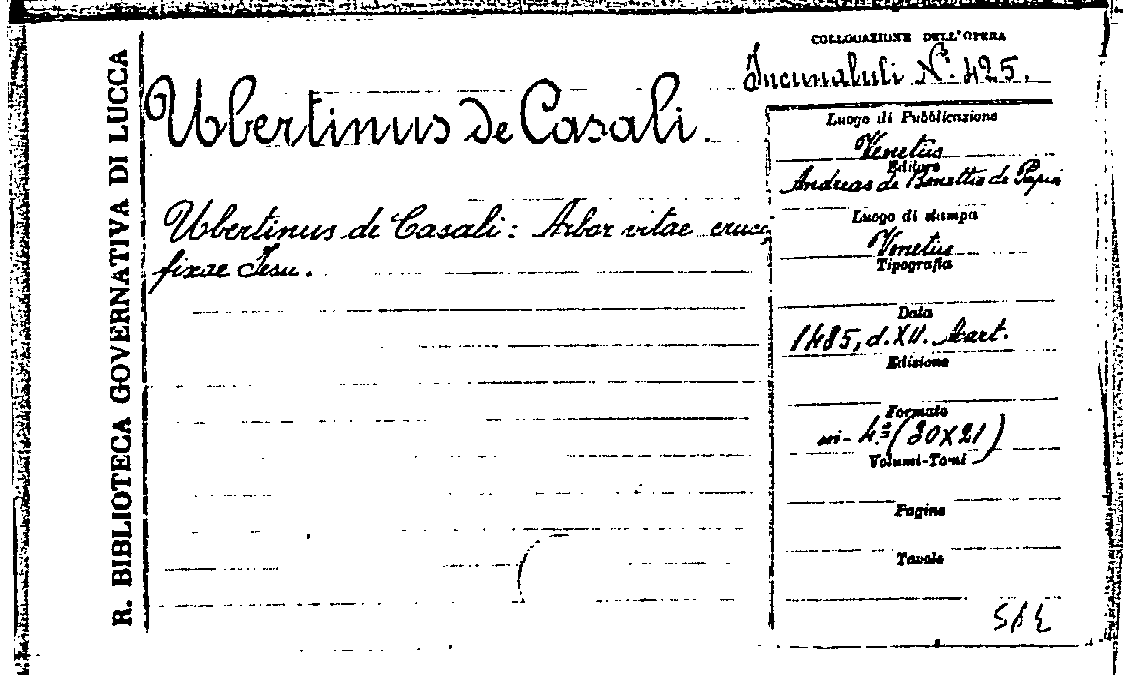 R. BIBLIOTECA GOVERNATIVA DI LUCCA
COLLOCAZIONE DELL'OPERA
Incunaluli N.º 425.
Ubertinus de Casali.
Ubertinus de Casali: Arbor vitae cruci
fixae Iesu.
Luogo di Pubblicazione
Venetus
Editore
Andreas de Bonettis de Papia
Luogo di stampa
Venetus
Tipografia
Data
1485, d. XII. Mart.
Edizione
Formato
in-4º (30X21)
Volumi-Tomi
Pagine
Tavole